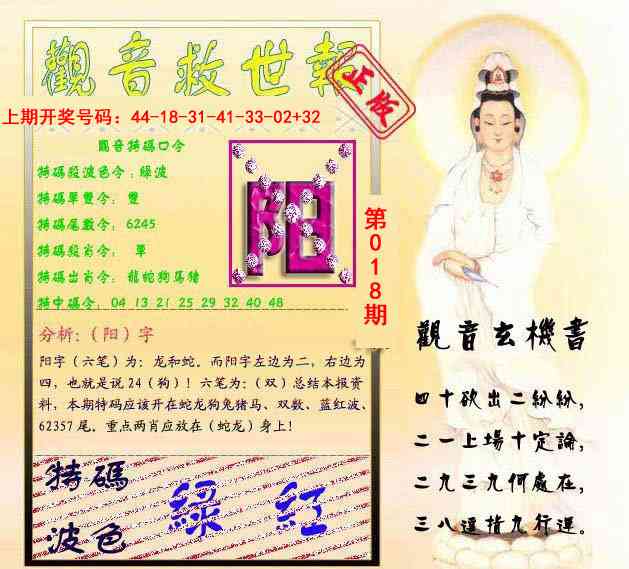 觀音救世報
正版
上期开奖号码：44-18-31-41-33-02+32
觀音特碼口令
特碼段波色令：綠波
特碼單雙令：雙
特碼尾數令：6245
特碼段肖令：單
特碼出肖令：龍蛇狗馬豬
特中碼令：04 13 21 25 29 32 40 48
阳
第018期
分析：（阳）字
阳字（六笔）为：龙和蛇。而阳字左边为二，右边为
四，也就是说24（狗）！六笔为：（双）总结本报资
料，本期特码应该开在蛇龙狗兔猪马、双数、蓝红波、
62357尾。重点两肖应放在（蛇龙）身上！
特碼
波色
綠 紅
觀音玄機書
四十欲出二紛紛，
二一上場十定論，
二九三九何處在，
三八運指九行運。